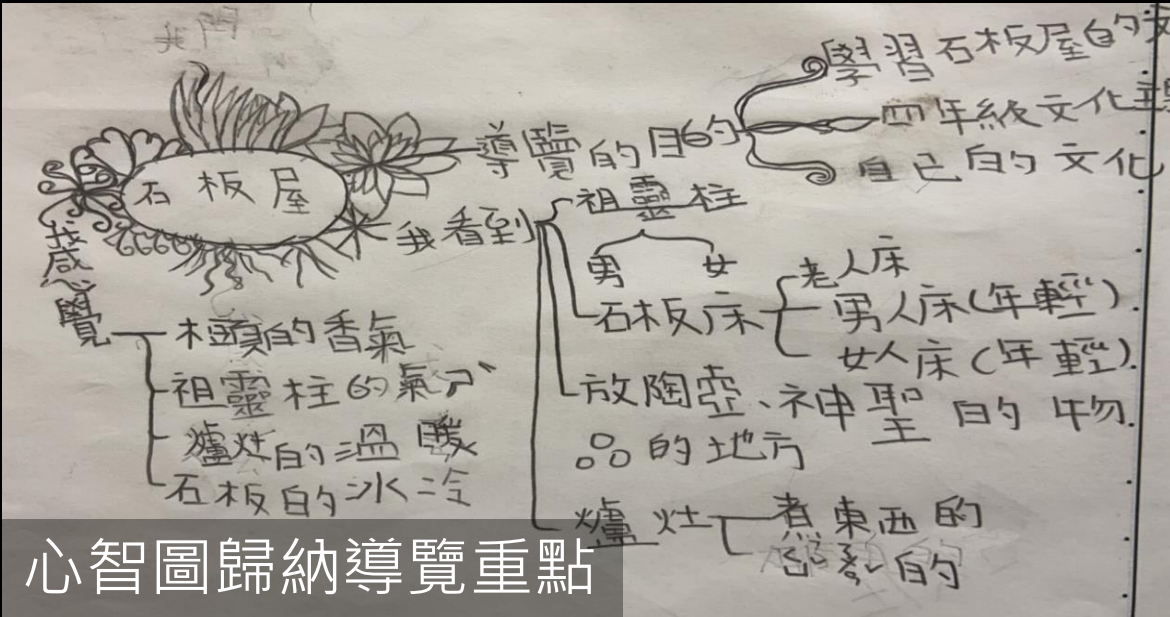 石板屋
導覽的目的
學習石板屋的文
四年級文化主
自己的文化
我看到
祖靈柱
男 女
石板床
老人床
男人床(年輕)
女人床(年輕).
放陶壺、神聖的物
品的地方
爐灶
煮東西的
的
我感覺
木頭的香氣
祖靈柱的氣分
爐灶的溫暖
石板的冰冷
心智圖歸納導覽重點